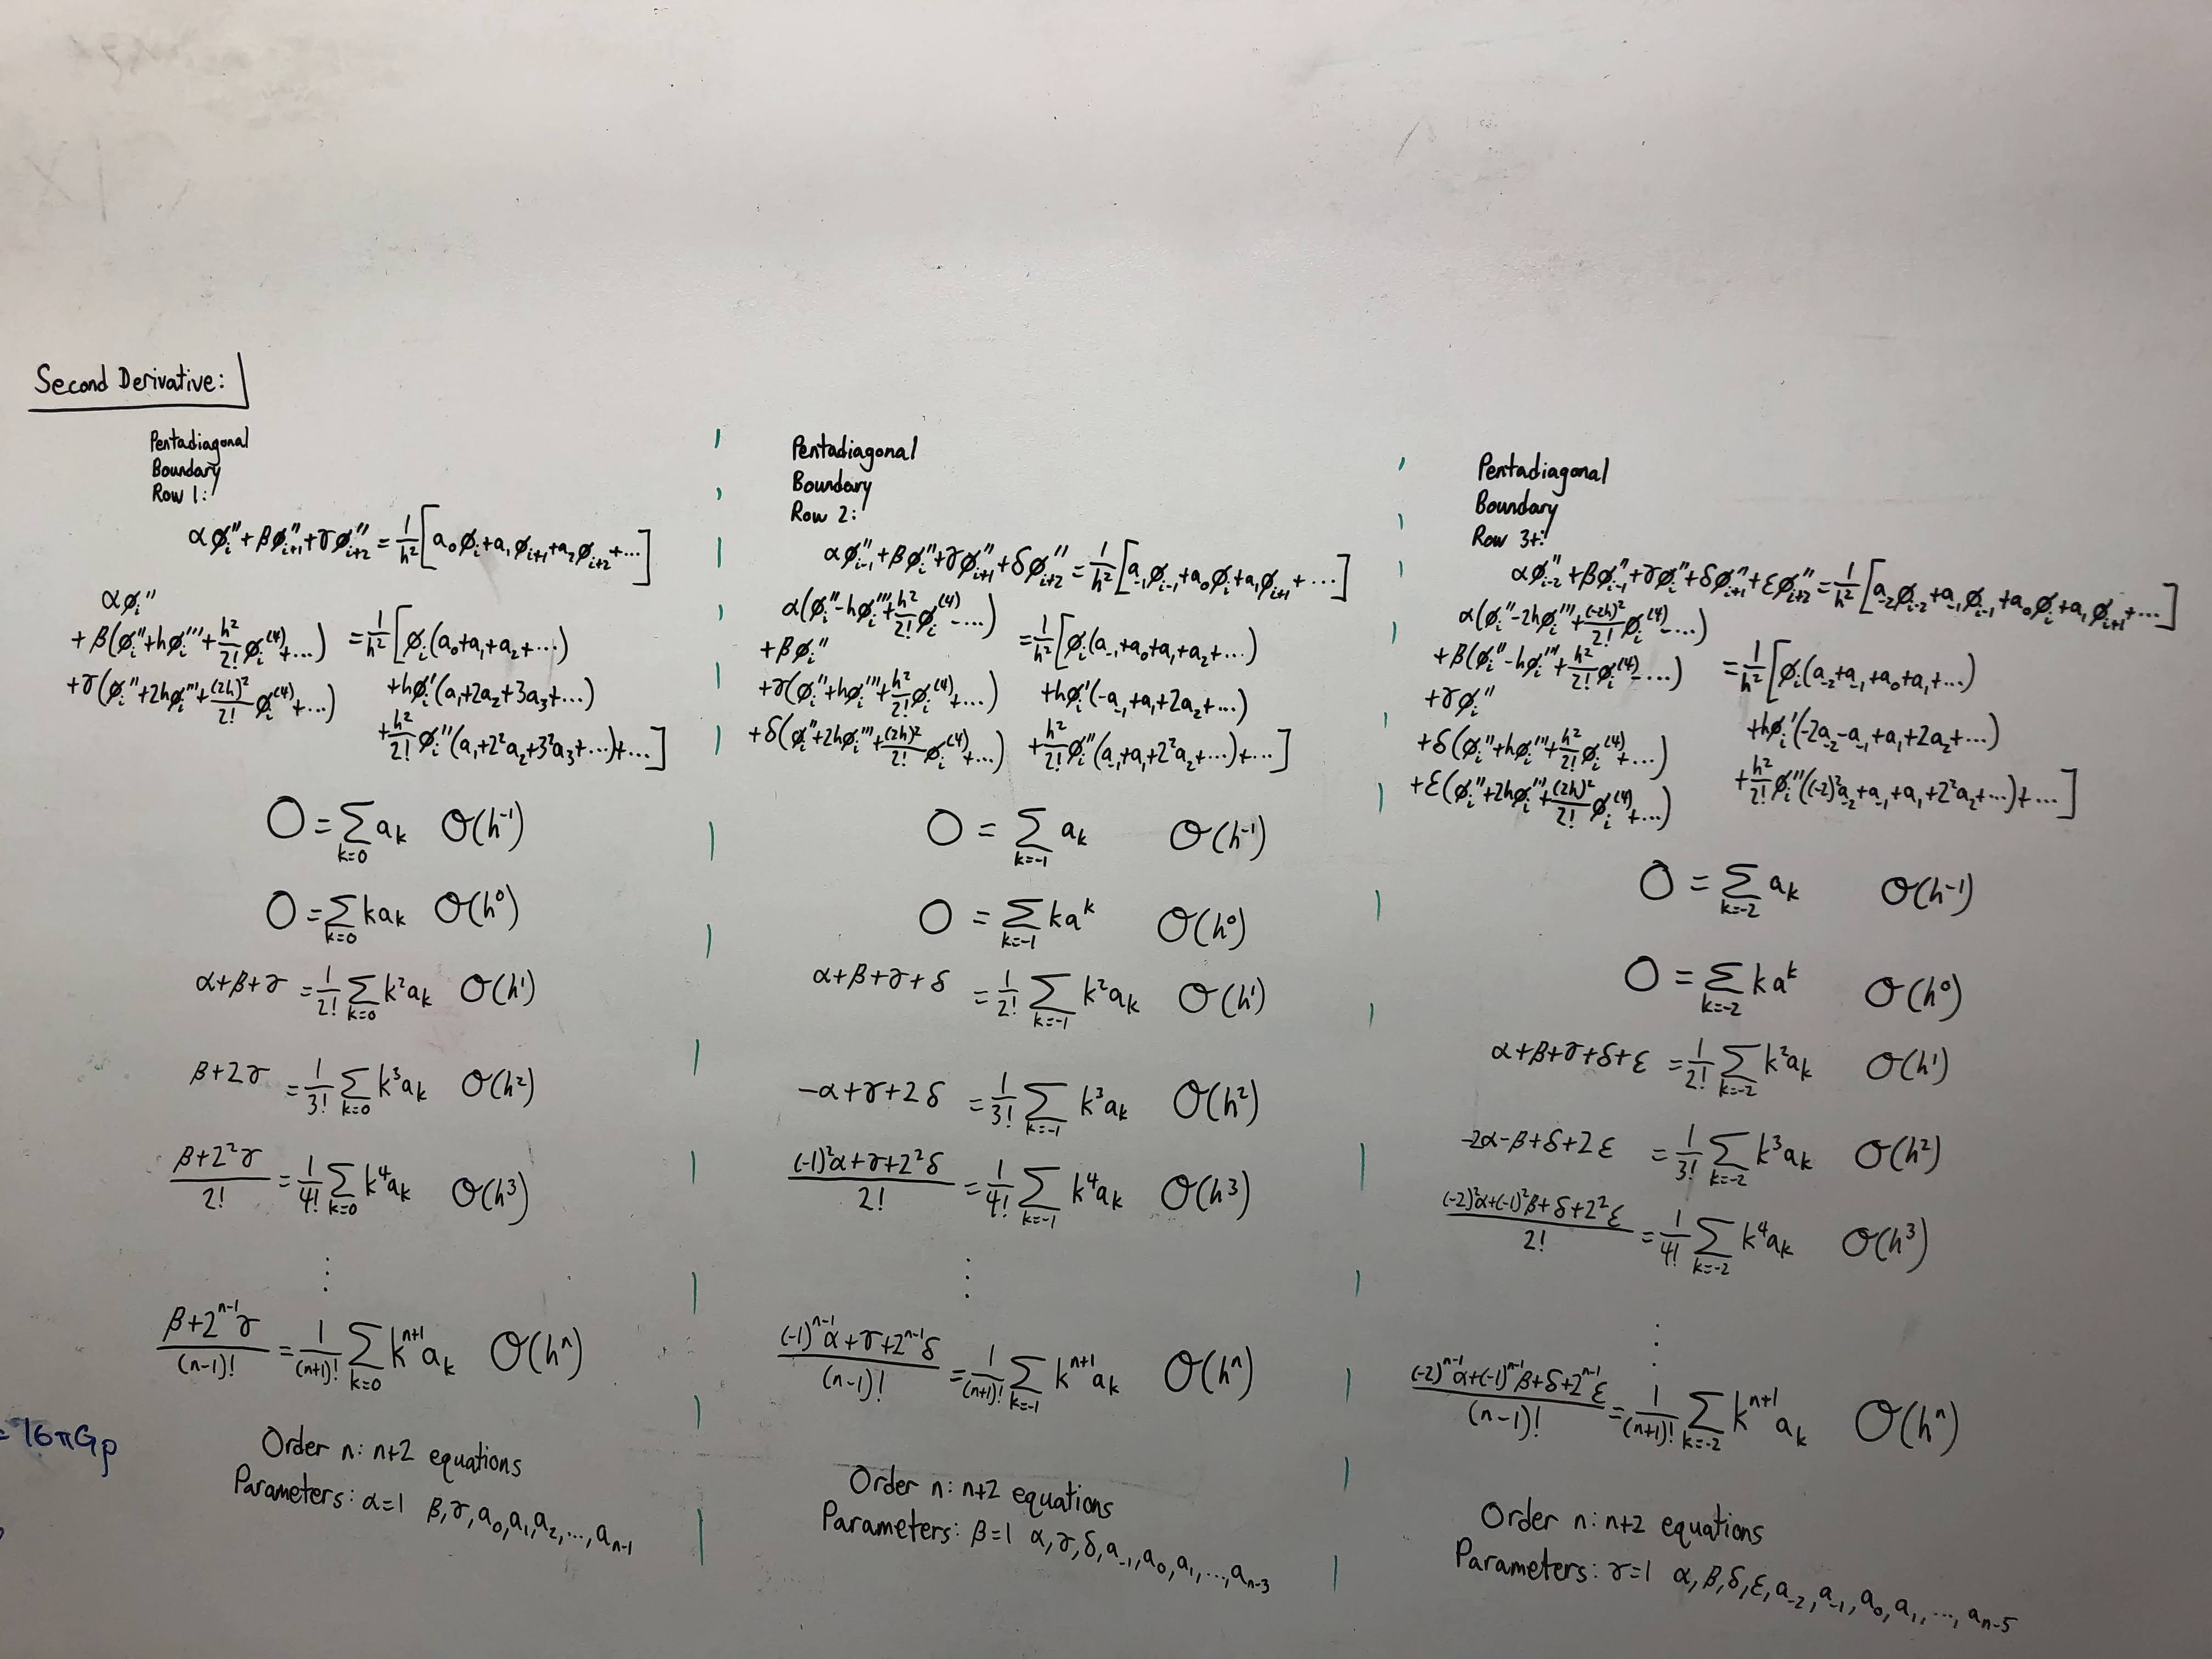 Second Derivative:
Pentadiagonal
Boundary
Row 1:
αφᵢ'' + βφᵢ₊₁'' + γφᵢ₊₂'' = 1/h² [a₀φᵢ + a₁φᵢ₊₁ + a₂φᵢ₊₂ + ...]
αφᵢ''
+ β(φᵢ'' + hφᵢ''' + h²/2! φᵢ⁽⁴⁾ + ...) = 1/h² [φᵢ(a₀ + a₁ + a₂ + ...)
+ γ(φᵢ'' + 2hφᵢ''' + (2h)²/2! φᵢ⁽⁴⁾ + ...) + hφᵢ'(a₁ + 2a₂ + 3a₃ + ...)
+ h²/2! φᵢ''(a₁ + 2²a₂ + 3²a₃ + ...) + ...]
0 = Σ_{k=0} aₖ O(h⁻¹)
0 = Σ_{k=0} kaₖ O(h⁰)
α+β+γ = 1/2! Σ_{k=0} k²aₖ O(h¹)
β+2γ = 1/3! Σ_{k=0} k³aₖ O(h²)
(β+2²γ)/2! = 1/4! Σ_{k=0} k⁴aₖ O(h³)
⋮
(β+2ⁿ⁻¹γ)/(n-1)! = 1/(n+1)! Σ_{k=0} kⁿ⁺¹aₖ O(hⁿ)
Order n: n+2 equations
Parameters: α=1 β, γ, a₀, a₁, a₂, ..., aₙ₋₁
Pentadiagonal
Boundary
Row 2:
αφᵢ₋₁'' + βφᵢ'' + γφᵢ₊₁'' + δφᵢ₊₂'' = 1/h² [a₋₁φᵢ₋₁ + a₀φᵢ + a₁φᵢ₊₁ + ...]
α(φᵢ'' - hφᵢ''' + h²/2! φᵢ⁽⁴⁾ - ...)
+ βφᵢ'' = 1/h² [φᵢ(a₋₁ + a₀ + a₁ + a₂ + ...)
+ γ(φᵢ'' + hφᵢ''' + h²/2! φᵢ⁽⁴⁾ + ...) + hφᵢ'(-a₋₁ + a₁ + 2a₂ + ...)
+ δ(φᵢ'' + 2hφᵢ''' + (2h)²/2! φᵢ⁽⁴⁾ + ...) + h²/2! φᵢ''(a₋₁ + a₁ + 2²a₂ + ...) + ...]
0 = Σ_{k=-1} aₖ O(h⁻¹)
0 = Σ_{k=-1} kaᵏ O(h⁰)
α+β+γ+δ = 1/2! Σ_{k=-1} k²aₖ O(h¹)
-α+γ+2δ = 1/3! Σ_{k=-1} k³aₖ O(h²)
((-1)²α+γ+2²δ)/2! = 1/4! Σ_{k=-1} k⁴aₖ O(h³)
⋮
((-1)ⁿ⁻¹α+γ+2ⁿ⁻¹δ)/(n-1)! = 1/(n+1)! Σ_{k=-1} kⁿ⁺¹aₖ O(hⁿ)
Order n: n+2 equations
Parameters: β=1 α, γ, δ, a₋₁, a₀, a₁, ..., aₙ₋₃
Pentadiagonal
Boundary
Row 3+:
αφᵢ₋₂'' + βφᵢ₋₁'' + γφᵢ'' + δφᵢ₊₁'' + εφᵢ₊₂'' = 1/h² [a₋₂φᵢ₋₂ + a₋₁φᵢ₋₁ + a₀φᵢ + a₁φᵢ₊₁ + ...]
α(φᵢ'' - 2hφᵢ''' + (-2h)²/2! φᵢ⁽⁴⁾ - ...)
+ β(φᵢ'' - hφᵢ''' + h²/2! φᵢ⁽⁴⁾ - ...) = 1/h² [φᵢ(a₋₂ + a₋₁ + a₀ + a₁ + ...)
+ γφᵢ''
+ δ(φᵢ'' + hφᵢ''' + h²/2! φᵢ⁽⁴⁾ + ...) + hφᵢ'(-2a₋₂ - a₋₁ + a₁ + 2a₂ + ...)
+ ε(φᵢ'' + 2hφᵢ''' + (2h)²/2! φᵢ⁽⁴⁾ + ...) + h²/2! φᵢ''((-2)²a₋₂ + a₋₁ + a₁ + 2²a₂ + ...) + ...]
0 = Σ_{k=-2} aₖ O(h⁻¹)
0 = Σ_{k=-2} kaᵏ O(h⁰)
α+β+γ+δ+ε = 1/2! Σ_{k=-2} k²aₖ O(h¹)
-2α-β+δ+2ε = 1/3! Σ_{k=-2} k³aₖ O(h²)
((-2)²α+(-1)²β+δ+2²ε)/2! = 1/4! Σ_{k=-2} k⁴aₖ O(h³)
⋮
((-2)ⁿ⁻¹α+(-1)ⁿ⁻¹β+δ+2ⁿ⁻¹ε)/(n-1)! = 1/(n+1)! Σ_{k=-2} kⁿ⁺¹aₖ O(hⁿ)
Order n: n+2 equations
Parameters: γ=1 α, β, δ, ε, a₋₂, a₋₁, a₀, a₁, ..., aₙ₋₅
= 16πGρ